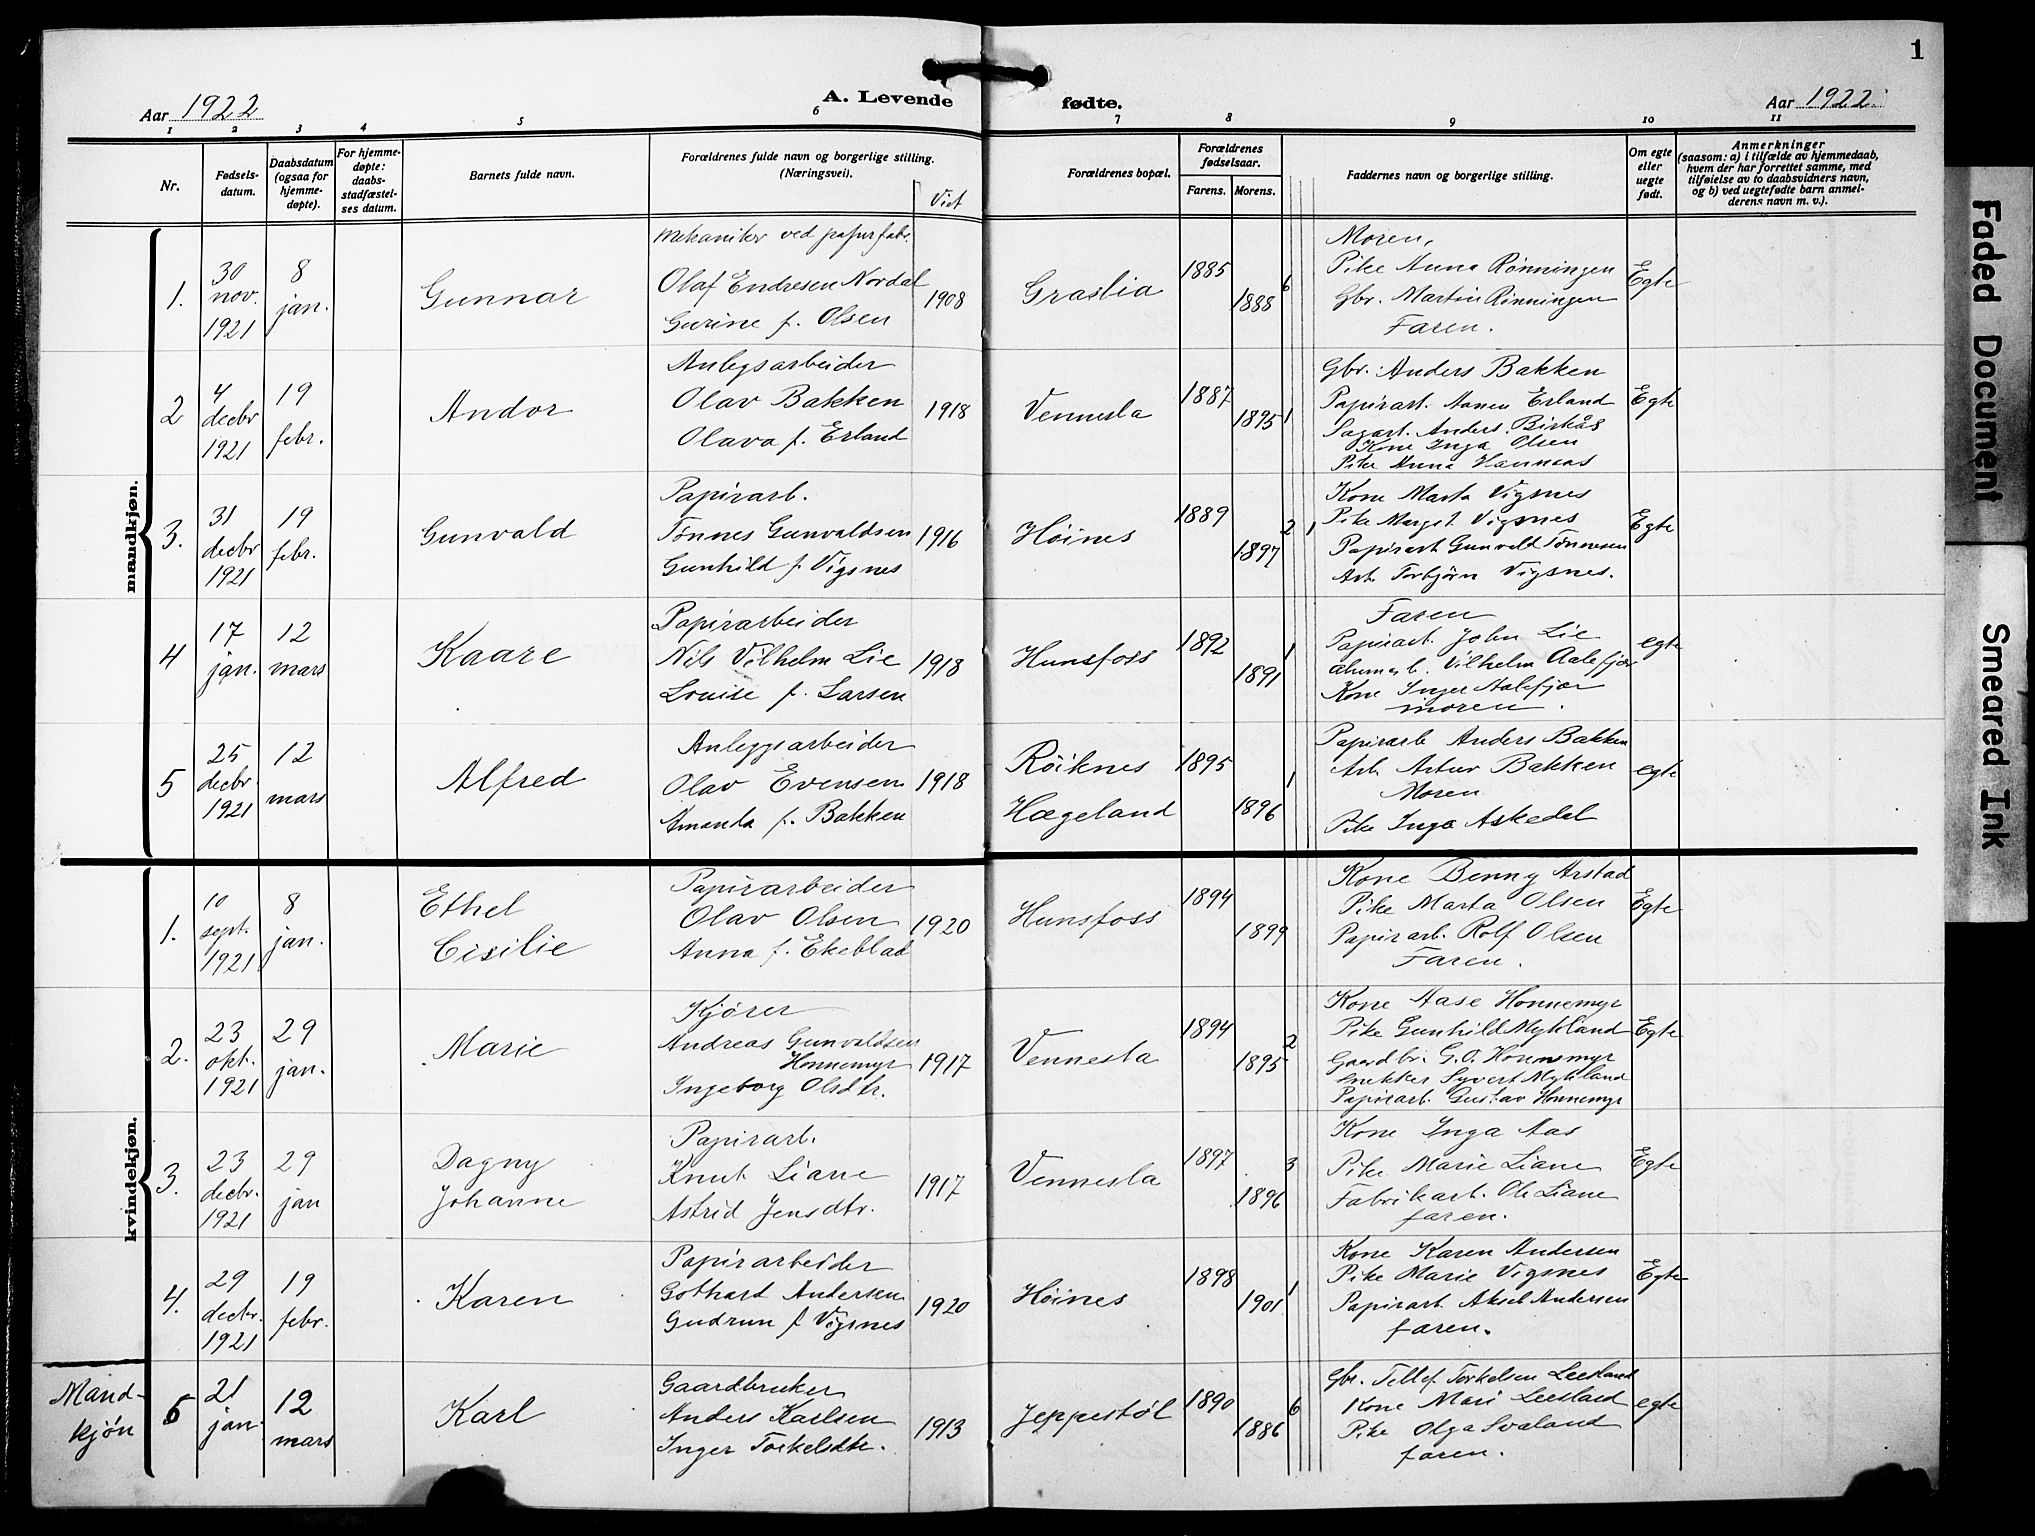 1
Aar 1922
A. Levende
fødte.
Aar 1922
1 2 3 4 5 6 7 8 9 10 11
Nr.
Fødsels-
datum.
Daabsdatum
(ogsaa for
hjemme-
døpte).
For hjemme-
døpte:
daabs-
stadfæstel-
ses datum.
Barnets fulde navn.
Forældrenes fulde navn og borgerlige stilling.
(Næringsvei).
Viet
Forældrenes bopæl.
Forældrenes
fødselsaar.
Farens. Morens.
Faddernes navn og borgerlige stilling.
Om egte
eller
uegte
født.
Anmerkninger
(saasom: a) i tilfælde av hjemmedaab,
hvem der har forrettet samme, med
tilføielse av to daabsvidners navn,
og b) ved uegtefødte barn anmel-
derens navn m. v.).
mandkjøn.
1.
30
nov.
1921
8
jan.
Gunnar
Mekaniker ved papirfabr.
Olaf Endresen Nordal
Gurine f. Olsen
1908
Graslia
1885
1888
6
Moren,
Pike Anna Rønningen
Gbr. Martin Rønningen
Faren.
Egte
2
4
decbr
1921
19
febr.
Andor
Anlegsarbeider
Olav Bakken
Olava f. Erland
1918
Vennesla
1887
1895
1
Gbr. Anders Bakken
Papirarb. Aanen Erland
Sagarb. Anders Birkås
Kone Inga Olsen
Pike Anna Hannaas
Egte
3.
31
decbr
1921
19
febr.
Gunvald
Papirarb.
Tønnes Gunvaldsen
Gunhild f. Vigsnes
1916
Høines
1889
1897
2 1
Kone Marta Vigsnes
Pike Margit Vigsnes
Papirarb Gunvald Tønnesen
Arb. Torbjørn Vigsnes.
Egte
4
17
jan.
12
mars
Kaare
Papirarbeider
Nils Vilhelm Lie
Louise f. Larsen
1918
Hunsfoss
1892
1891
1
Faren
Papirarb. John Lie
Vilhelm Aalefjær
Kone Inger Aalefjær
moren.
egte
5
25
decbr.
1921
12
mars
Alfred
Anleggsarbeider
Olav Evensen
Amanda f. Bakken
1918
Røiknes
Hægeland
1895
1896
1
Papirarb Anders Bakken
Arb. Artur Bakken
Moren
Pike Inga Askedal
egte
kvindekjøn.
1.
10
sept.
1921
8
jan.
Ethel
Cisilie
Papirarbeider
Olav Olsen
Anna f. Ekeblad
1920
Hunsfoss
1894
1899
Kone Benny Arstad
Pike Marta Olsen
Papirarb. Rolf Olsen
Faren.
Egte
2.
23
okt.
1921
29
jan.
Marie
Kjører
Andreas Gunvaldsen
Honnemyr
Ingeborg Olsdtr.
1917
Vennesla
1894
1895
2
Kone Aase Honnemyr
Pike Gunhild Mykland
Gaardbr. G. O. Honnemyr
Snekker Syvert Mykland
Papirarb. Gustav Honnemyr
Egte
3.
23
decbr.
1921
29
jan
Dagny
Johanne
Papirarb.
Knut Liane
Astrid Jensdtr.
1917
Vennesla
1897
1896
3
Kone Inga Aas
Pike Marie Liane
Fabrikarb. Ole Liane
faren.
Egte
4.
29
decbr.
1921
19
febr.
Karen
Papirarbeider
Gothard Andersen
Gudrun f. Vigsnes
1920
Høines
1898
1901
1
Kone Karen Andersen
Pike Marie Vigsnes
Papirarb. Aksel Andersen
faren.
Egte
Mand-
kjøn
6
21
jan.
12
mars
Karl
Gaardbruker
Anders Karlsen
Inger Torkelsdtr.
1913
Jeppestøl
1890
1886
6
Gbr. Tellef Torkelsen Leeland
Kone Mari Leeland
Pike Olga Svaland
faren.
egte
Faded Document
Smeared Ink